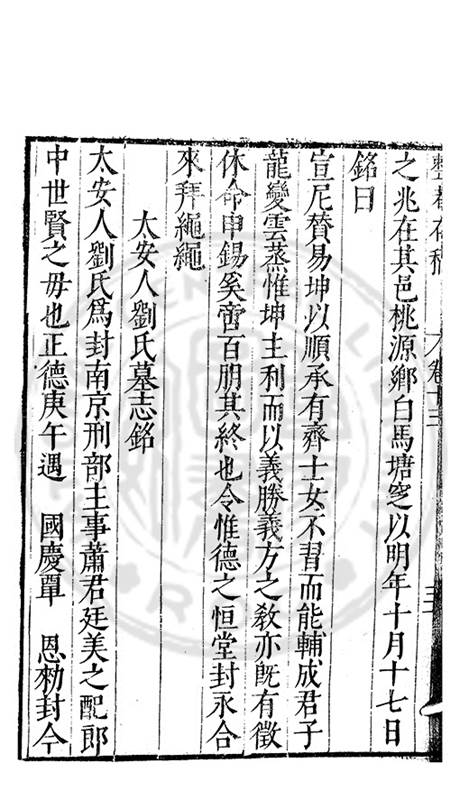 整菴存稿 卷十三 三
之兆在其邑桃源鄉白馬塘窆以明年十月十七日
銘曰
宣尼贊易坤以順承有齊士女不習而能輔成君子
龍變雲蒸惟坤主利而以義勝義方之敎亦旣有徵
休命申錫奚啻百朋其終也令惟德之恒堂封永合
來拜繩繩
太安人劉氏墓志銘
太安人劉氏爲封南京刑部主事蕭君廷美之配郎
中世賢之毋也正德庚午遇 國慶覃 恩勑封今